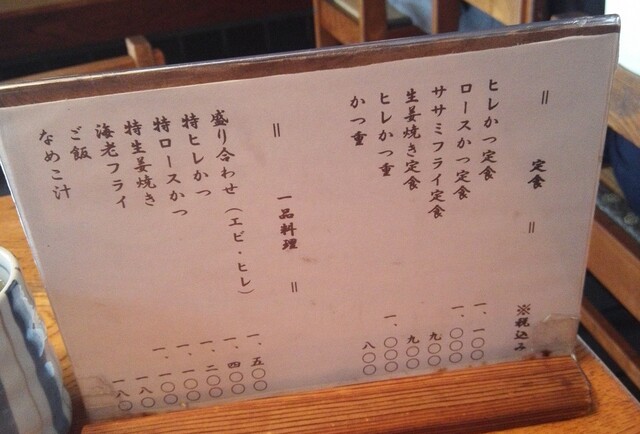 ＝ 定食 ＝ ※税込み
ヒレかつ定食 一、一〇〇
ロースかつ定食 一、〇〇〇
ササミフライ定食 九〇〇
生姜焼き定食 九〇〇
ヒレかつ重 一、〇〇〇
かつ重 八〇〇
＝ 一品料理 ＝
盛り合わせ（エビ・ヒレ） 一、五〇〇
特ヒレかつ 一、四〇〇
特ロースかつ 一、二〇〇
特生姜焼き
海老フライ
ご飯 一八〇
なめこ汁 一八〇